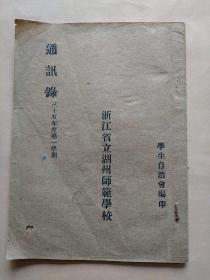 學生自治會編印
浙江省立湖州師範學校
通訊錄
三十五年度第一學期